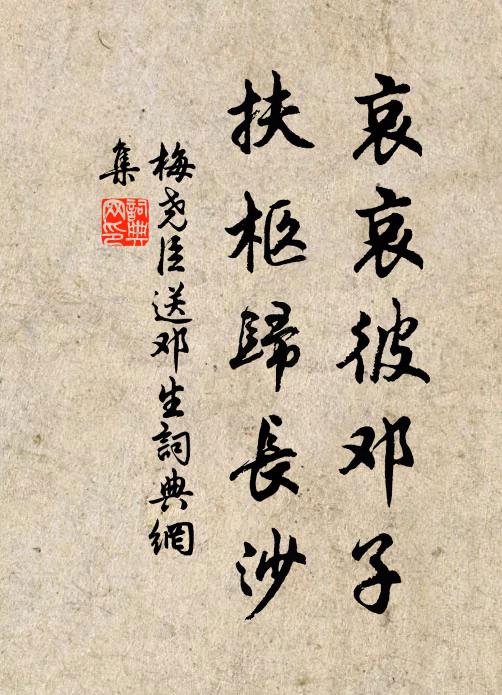 哀哀彼邓子
扶柩歸長沙
梅尧臣送邓生詞典網
集
詞典
网印